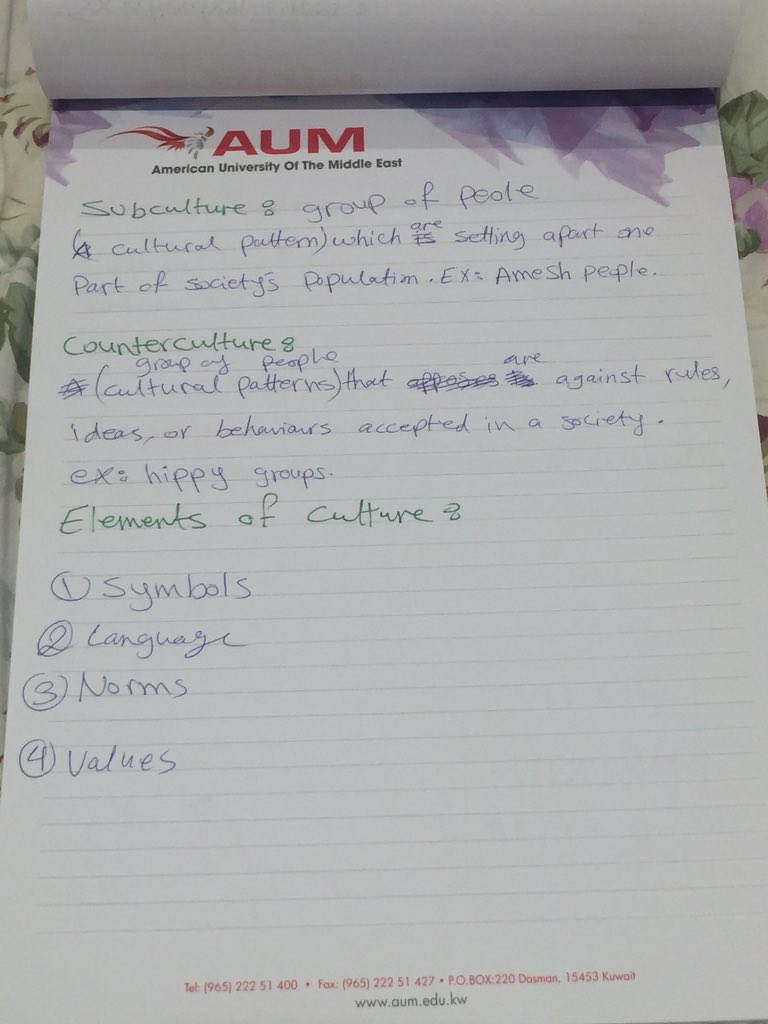 AUM
American University Of The Middle East
Subculture : group of peole
(A cultural pattern) which are setting apart one
Part of society's population. EX: Amesh people.
Counterculture :
group of people are
(cultural patterns) that opposes against rules,
Ideas, or behaviours accepted in a society.
ex: hippy groups.
Elements of culture :
① Symbols
② Language
③ Norms
④ Values
Tel: (965) 222 51 400 • Fax: (965) 222 51 427 • P.O.BOX:220 Dasman, 15453 Kuwait
www.aum.edu.kw